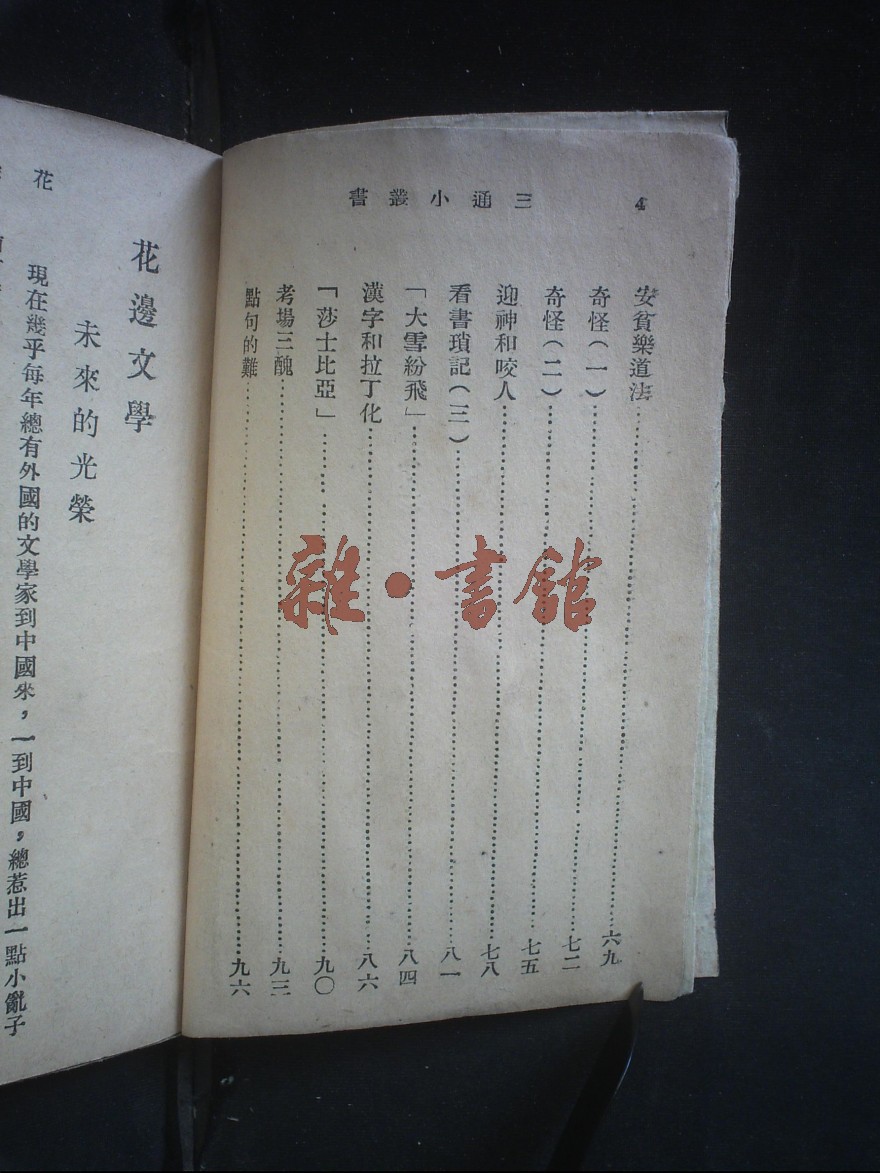 三通小叢書
4
安貧樂道法……六九
奇怪(一)……七二
奇怪(二)……七五
迎神和咬人……七八
看書瑣記(三)……八一
「大雪紛飛」……八四
漢字和拉丁化……八六
「莎士比亞」……九〇
考場三醜……九三
點句的難……九六
雜·書館
花
花邊文學
未來的光榮
現在幾乎每年總有外國的文學家到中國來,一到中國,總惹出一點小亂子